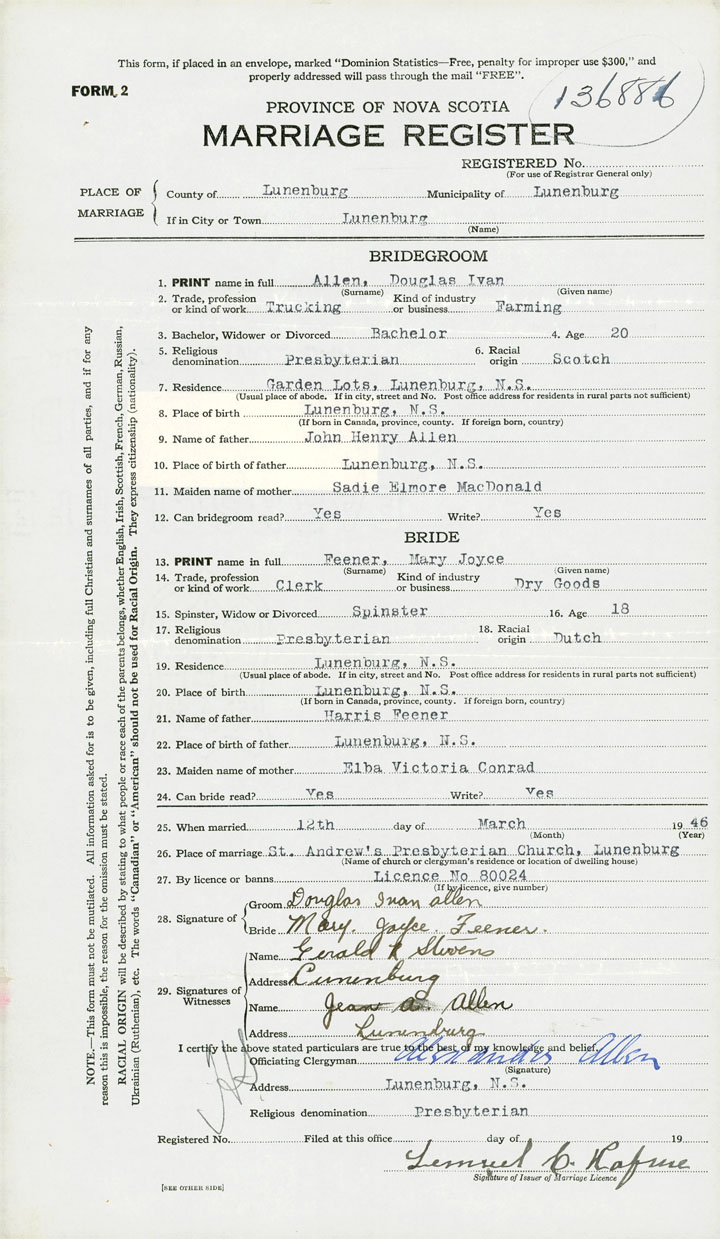 This form, if placed in an envelope, marked "Dominion Statistics—Free, penalty for improper use $300," and
properly addressed will pass through the mail "FREE".
FORM 2
136886
PROVINCE OF NOVA SCOTIA
MARRIAGE REGISTER
REGISTERED No.
(For use of Registrar General only)
PLACE OF MARRIAGE
County of Lunenburg Municipality of Lunenburg
If in City or Town Lunenburg
(Name)
BRIDEGROOM
1. PRINT name in full Allen, Douglas Ivan
(Surname) (Given name)
2. Trade, profession or kind of work Trucking Kind of industry or business Farming
3. Bachelor, Widower or Divorced Bachelor 4. Age 20
5. Religious denomination Presbyterian 6. Racial origin Scotch
7. Residence Garden Lots, Lunenburg, N.S.
(Usual place of abode. If in city, street and No. Post office address for residents in rural parts not sufficient)
8. Place of birth Lunenburg, N.S.
(If born in Canada, province, county. If foreign born, country)
9. Name of father John Henry Allen
10. Place of birth of father Lunenburg, N.S.
11. Maiden name of mother Sadie Elmore MacDonald
12. Can bridegroom read? Yes Write? Yes
BRIDE
13. PRINT name in full Feener, Mary Joyce
(Surname) (Given name)
14. Trade, profession or kind of work Clerk Kind of industry or business Dry Goods
15. Spinster, Widow or Divorced Spinster 16. Age 18
17. Religious denomination Presbyterian 18. Racial origin Dutch
19. Residence Lunenburg, N.S.
(Usual place of abode. If in city, street and No. Post office address for residents in rural parts not sufficient)
20. Place of birth Lunenburg, N.S.
(If born in Canada, province, county. If foreign born, country)
21. Name of father Harris Feener
22. Place of birth of father Lunenburg, N.S.
23. Maiden name of mother Elba Victoria Conrad
24. Can bride read? Yes Write? Yes
25. When married 12th day of March 19 46
(Month) (Year)
26. Place of marriage St. Andrew's Presbyterian Church, Lunenburg
(Name of church or clergyman's residence or location of dwelling house)
27. By licence or banns Licence No 80024
(If by licence, give number)
28. Signature of
Groom Douglas Ivan allen
Bride Mary. Joyce. Feener.
29. Signatures of Witnesses
Name Gerald R Stevens
Address Lunenburg
Name Jean a. Allen
Address Lunenburg
I certify the above stated particulars are true to the best of my knowledge and belief.
Officiating Clergyman Alexander Allen
(Signature)
Address Lunenburg, N.S.
Religious denomination Presbyterian
Registered No. Filed at this office day of 19
Lemuel C. Rafuse
Signature of Issuer of Marriage Licence
[SEE OTHER SIDE]
NOTE.—This form must not be mutilated. All information asked for is to be given, including full Christian and surnames of all parties, and if for any
reason this is impossible, the reason for the omission must be stated.
RACIAL ORIGIN will be described by stating to what people or race each of the parents belongs, whether English, Irish, Scottish, French, German, Russian,
Ukrainian (Ruthenian), etc. The words "Canadian" or "American" should not be used for Racial Origin. They express citizenship (nationality).